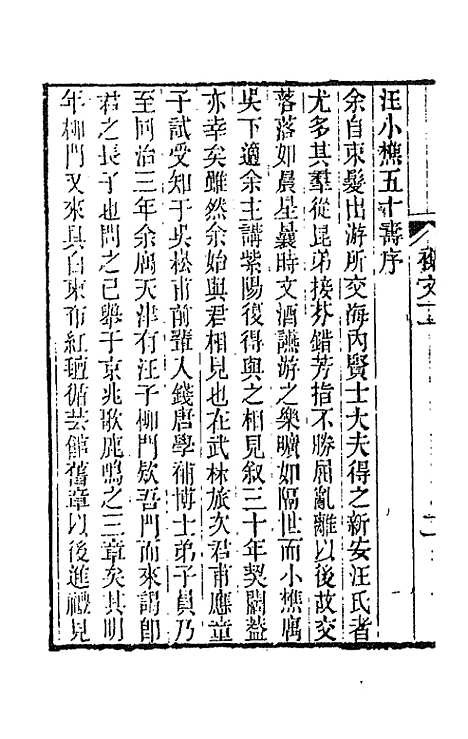 襍文一
一
汪小樵五十壽序
余自束髮出游所交海內賢士大夫得之新安汪氏者
尤多其羣從昆弟接芬錯芳指不勝屈亂離以後故交
落落如晨星曩時文酒讌游之樂曠如隔世而小樵寓
吳下適余主講紫陽復得與之相見敘三十年契闊葢
亦幸矣雖然余始與君相見也在武林旅次君甫應童
子試受知于吳松甫前輩入錢唐學補博士弟子員乃
至同治三年余寓天津有汪子柳門欵吾門而來謁卽
君之長子也問之已舉于京兆歌鹿鳴之三章矣其明
年柳門又來具白柬布紅氊循芸館舊章以後進禮見